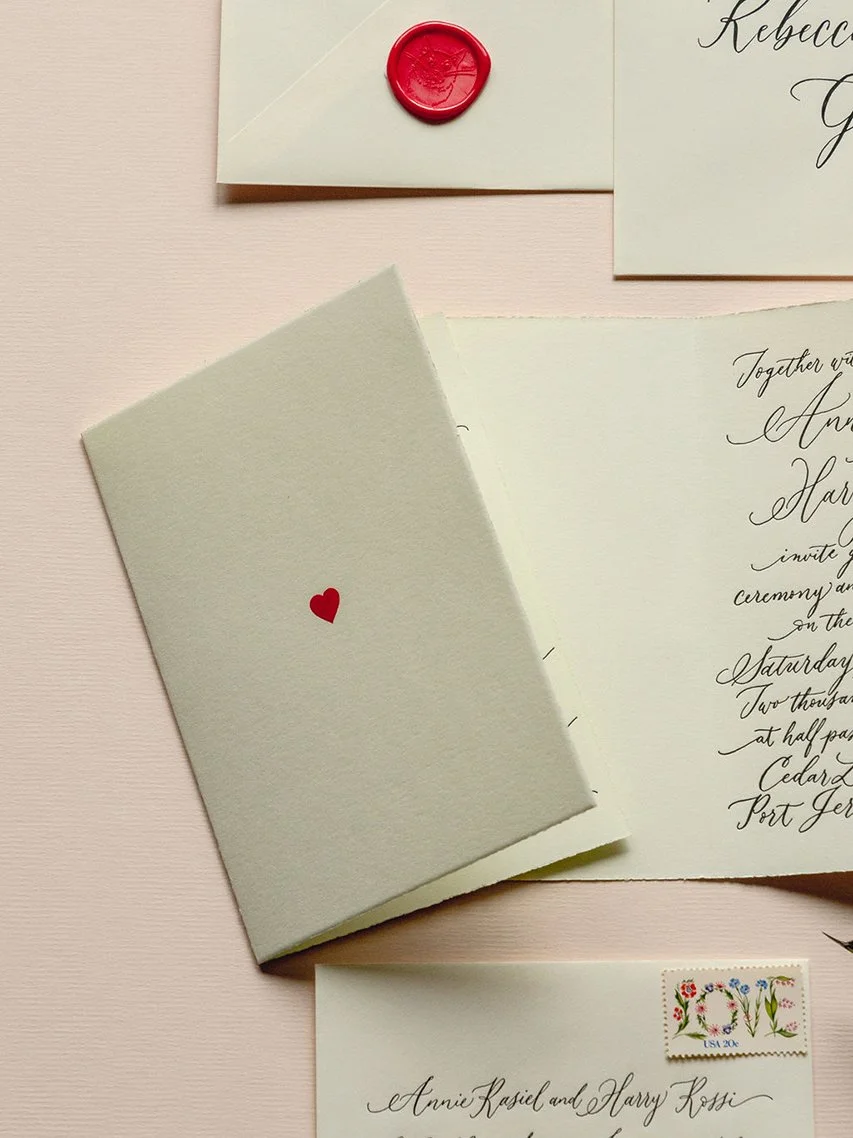 Rebecc
G
Together wi
Ann
Har
invite
ceremony an
on the
Saturday
Two thousan
at half pas
Cedar L
Port Jer
LOVE
USA 20c
Annie Rasiel and Harry Rossi